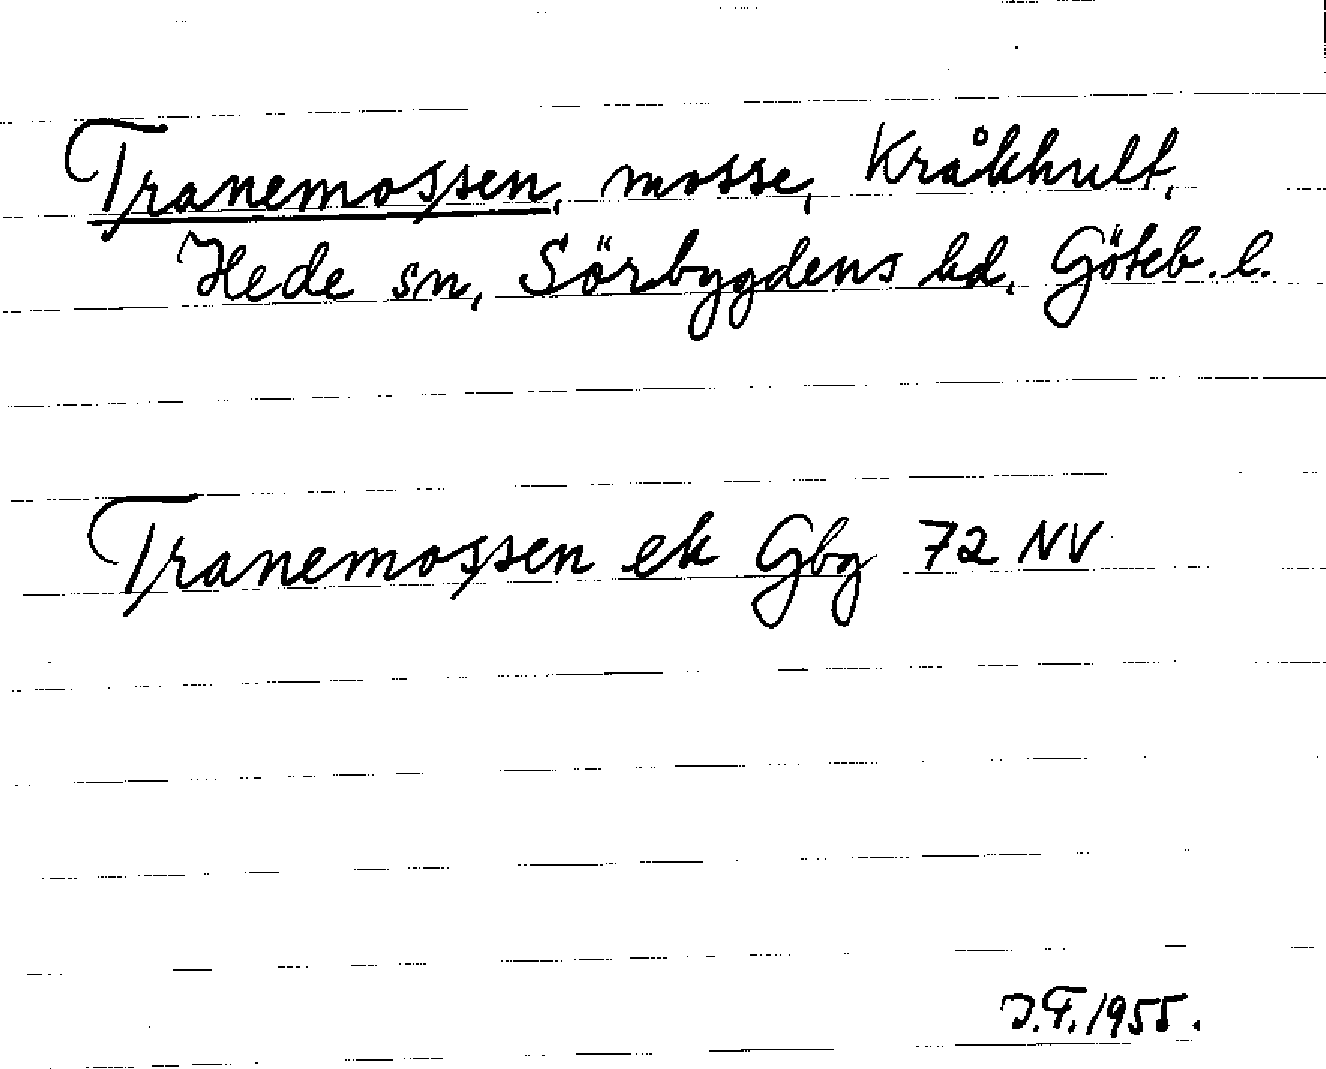 Tranemossen, mosse, Kråkhult,
Hede sn, Sörbygdens hd, Göteb. l.
Tranemossen ek Gbg 72 NV
J.F. 1955.